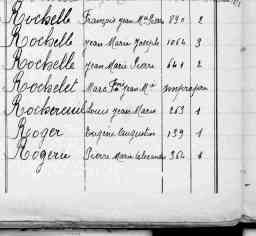 Rochelle François Jean Mie 890 2
Rochelle Jean Marie Joseph 1064 3
Rochelle Jean Marie Pierre 641 2
Rochelet Jean Mie impropre
Rochereuil Louis Jean Marie 263 1
Roger Eugène Augustin 139 1
Rogerie Pierre Marie 364 1